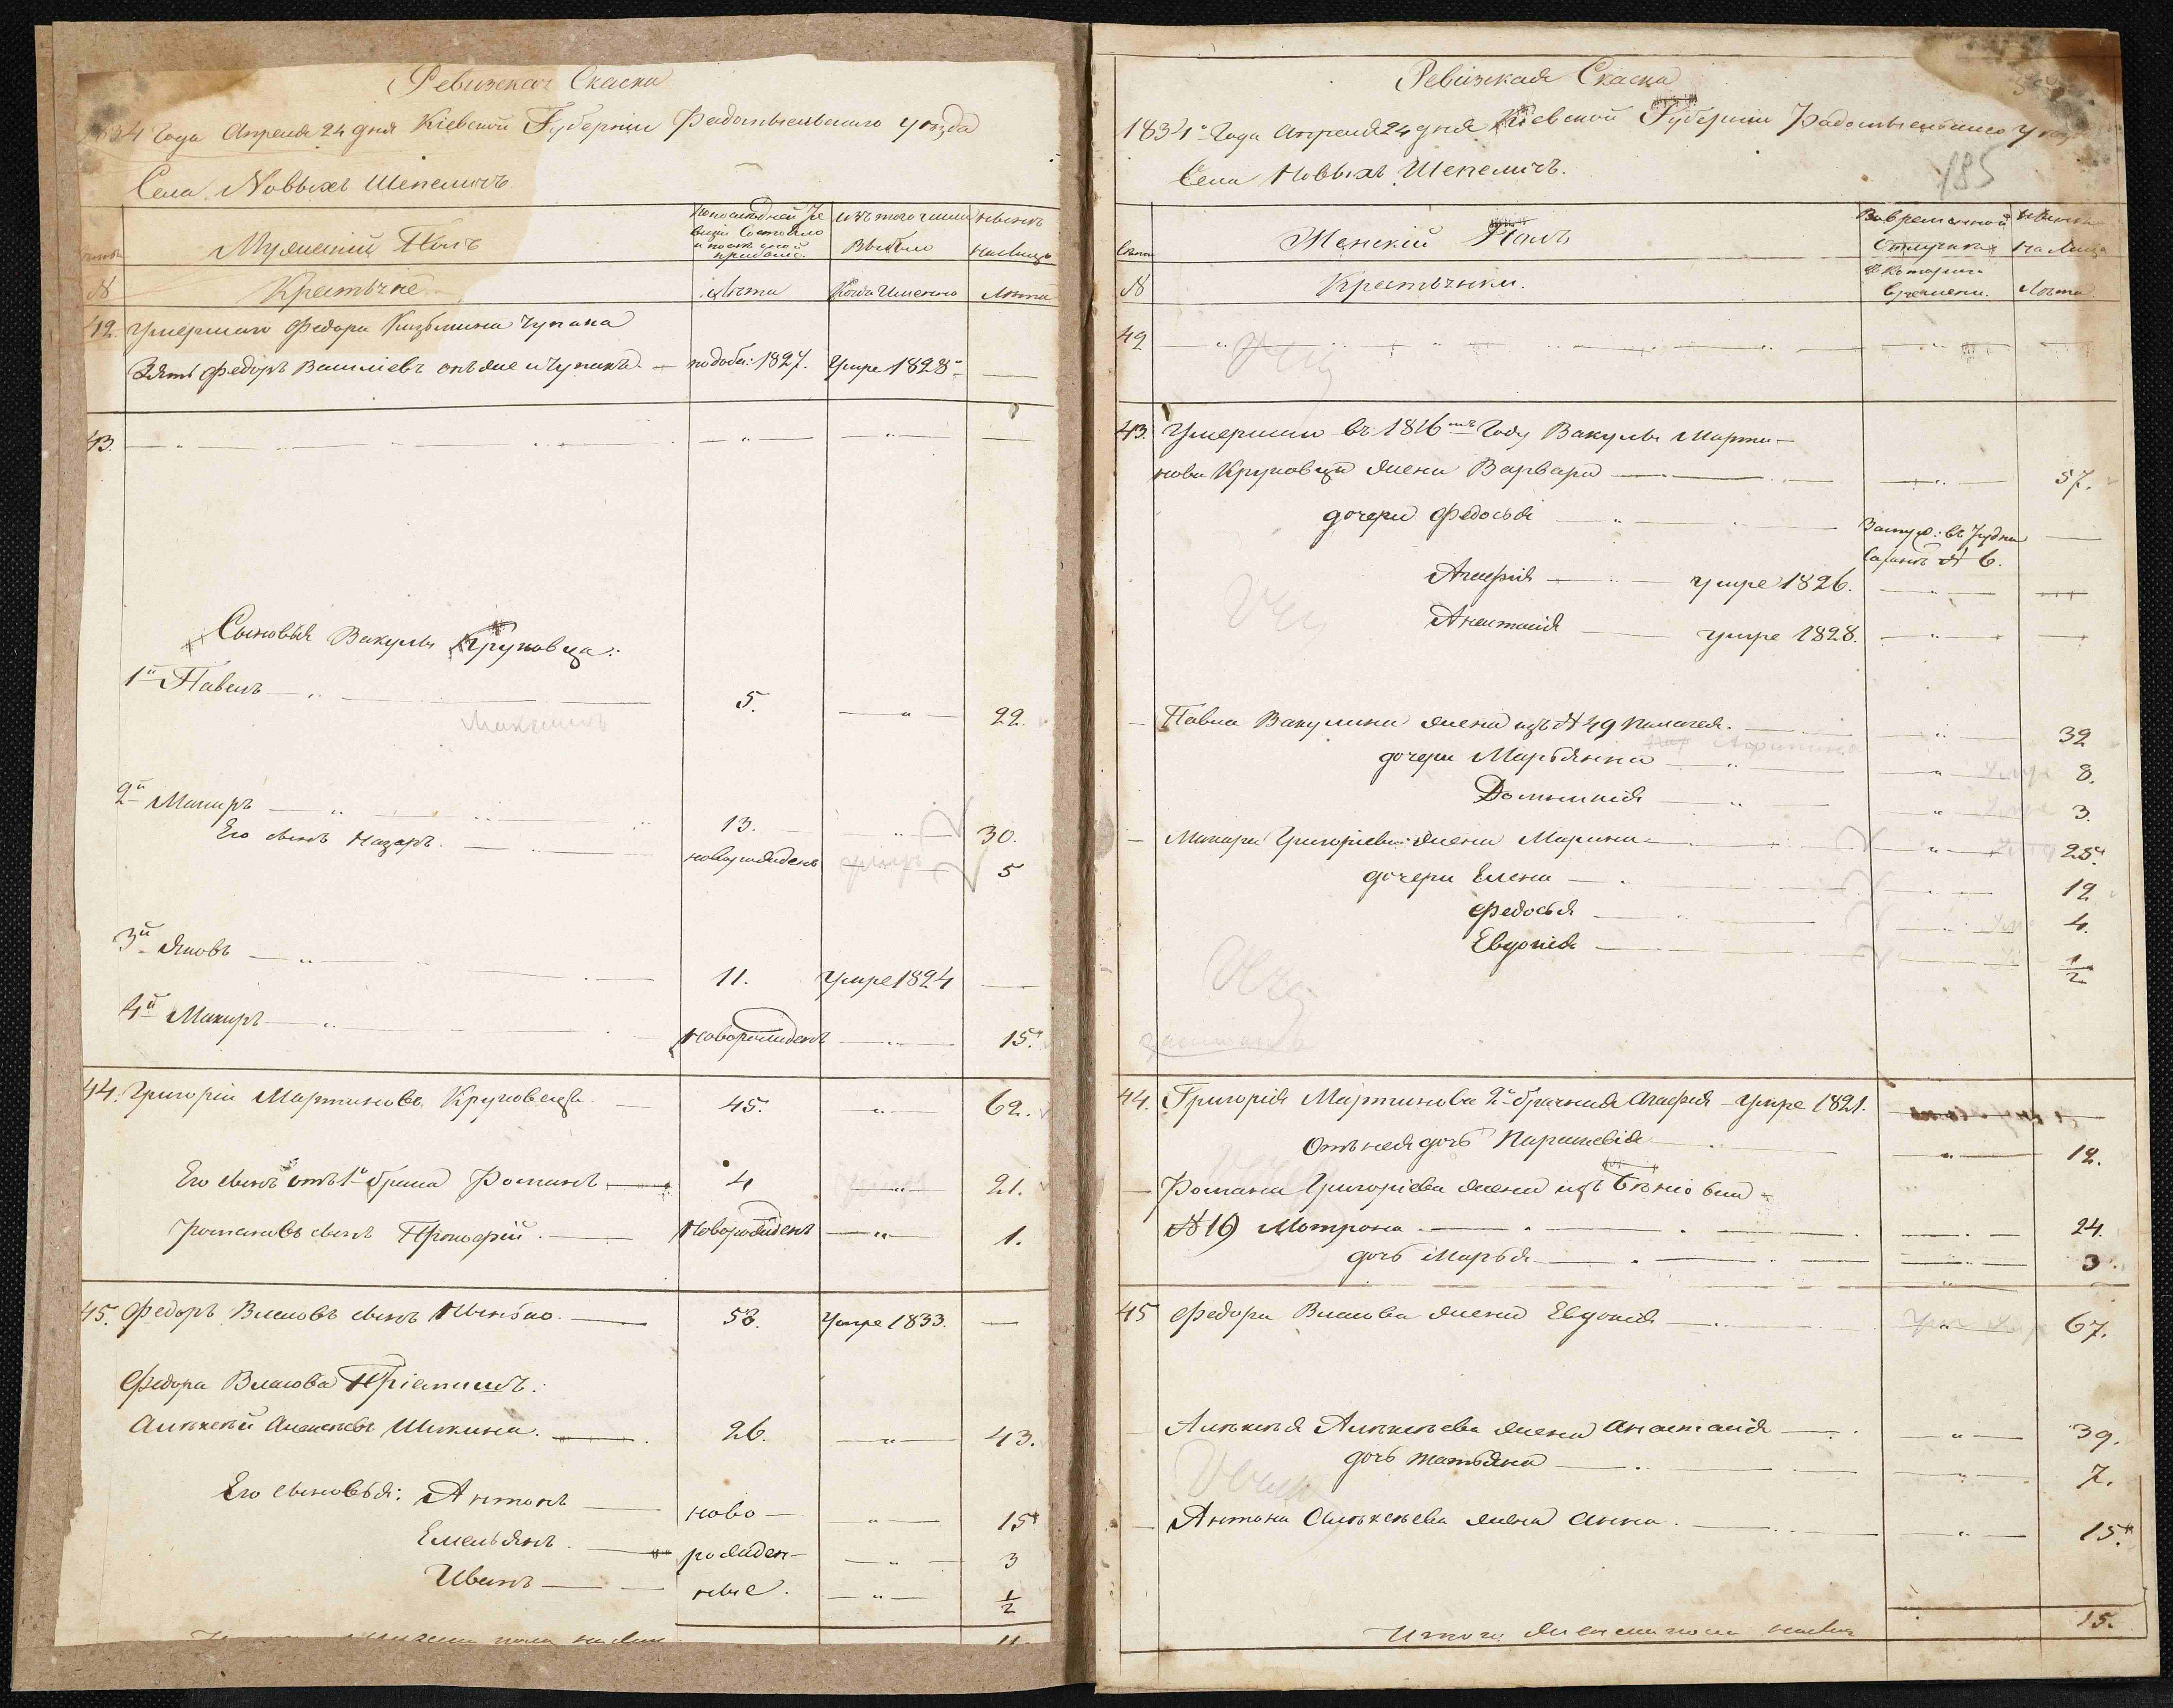 Ревизская Скаска
1834 Года Апреля 24 дня Кіевской Губерніи Радомысльского уезда
Села Новыхъ Шепеличъ
Мужеский Полъ
По последней Ревизіи Состояло и после оной прибыло
Изъ того числа Выбыло
Ныне на лицо
№ Крестьяне
Лета
Когда Именно
Лета
42. Умершаго Федора Кузьмина Чупака
Зять Федоръ Василіевъ онъ же и Чупакъ по доби: 1827. Умре 1828 —
43.
Сыновья Вакулы Круковца:
1й Павелъ 5. 22.
Максимъ
2й Макаръ 13. 30.
Его сынъ Назаръ новорожденъ умре 5
3й Яковъ 11. Умре 1824 —
4й Макаръ Новорожденъ 15.
44. Григорій Мартиновъ Круковецъ 45. 62.
Его сынъ отъ 1го брака Романъ 4 21.
Романовъ сынъ Прокофій Новорожденъ 1.
45. Федоръ Власовъ сынъ 53. Умре 1833. —
Федора Власова Пріемышъ:
Алексей Алексеевъ Шикина 26. 43.
Его сыновья: Антонъ ново- 15
Емельянъ рожден- 3
Иванъ ные. 1/2
11
Ревизская Скаска
1834го Года Апреля 24 дня Кіевской Губерніи Радомысльского
Села Новыхъ Шепеличъ.
185
Женскій Полъ
Во временной Отлучке
Ныне на Лицо
№ Крестьянки.
С Котораго Времени.
Лета
42
43. Умершаго въ 1816мъ Году Вакулы Марти-
нова Круковца жена Варвара 57.
дочери Федосья Замуж: въ №6. —
Агафия умре 1826. —
Анастасия умре 1828. —
Павла Вакулина жена изъ №49 Палагея. 32
дочери Марьянка 8.
Домникия 3.
Макара Григоріева жена Марина 25.
дочери Елена 12
Федосья 4.
Евдокия 1/2
44. Григория Мартинова 2го брачная Агафия Умре 1821. —
Отъ нея дочь Параскевія 12.
Романа Григоріева жена изъ
№19 Мотрона 24.
дочь Марья 3.
45 Федора Власова жена Евдокия 67.
Алексея Алексеева жена Анастасия 39.
дочь Татьяна 7.
Антона Алексеева жена Анна. 15.
Итого женского пола налицо 15.